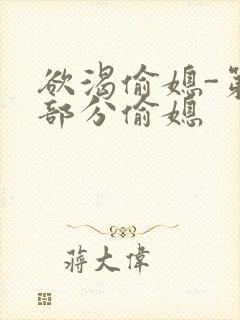 欲渴偷媳-第
部分偷媳
蒋大偉